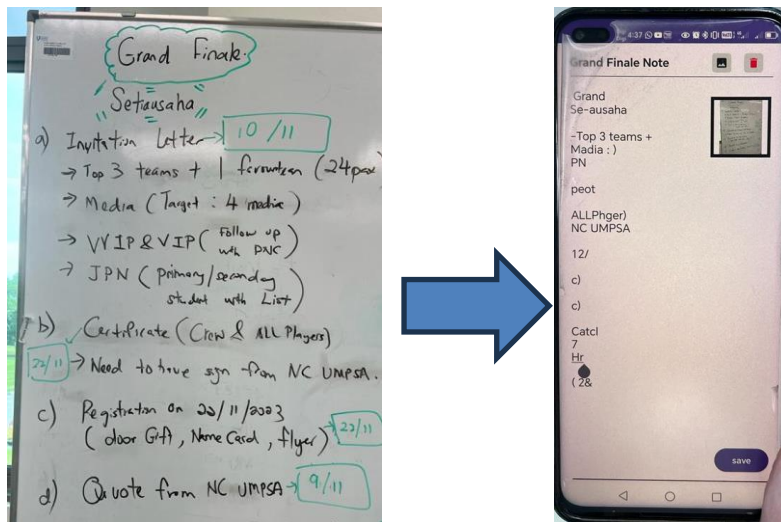 Grand Finale.
Setiausaha
a) Invitation Letter → 10/11
→ Top 3 teams + 1 (24pax
→ Media (Target : 4 media)
→ VVIP & VIP (Follow up
with PNC)
→ JPN (primary/secondary
student with List)
b) Certificate (Crew & ALL Players)
22/11 → Need to have sign from NC UMPSA.
c) Registration on 22/11/2023
(door Gift, Name Card, flyer) → 22/11
d) Quote from NC UMPSA → 9/11
4:37
Grand Finale Note
Grand
Se-ausaha
-Top 3 teams +
Madia : )
PN
peot
ALLPhger)
NC UMPSA
12/
c)
c)
Catcl
7
Hr
( 2&
save